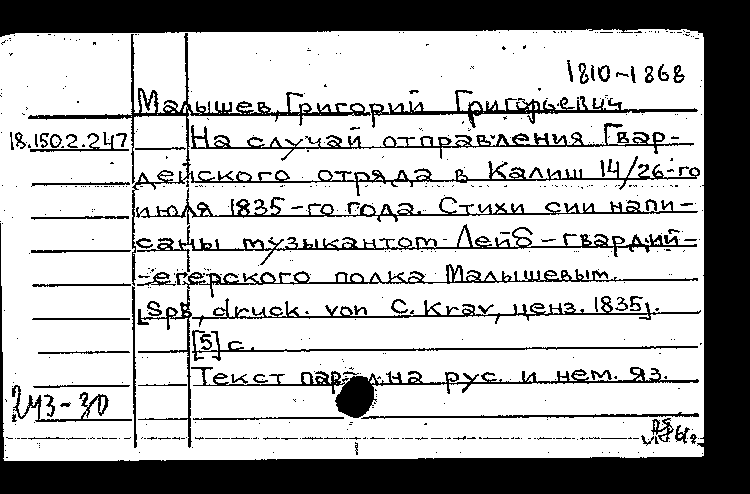 1810-1868
Малышев, Григорий Григорьевич
18.150.2.247 На случай отправления Гвар-
дейского отряда в Калиш 14/26-го
июля 1835-го года. Стихи сии напи-
саны музыкантом Лейб-гвардий-
-егерского полка Малышевым.
[Spb, druck. von C. Krav, ценз. 1835].
[5] с.
Текст парал. на рус. и нем. яз.
243-30